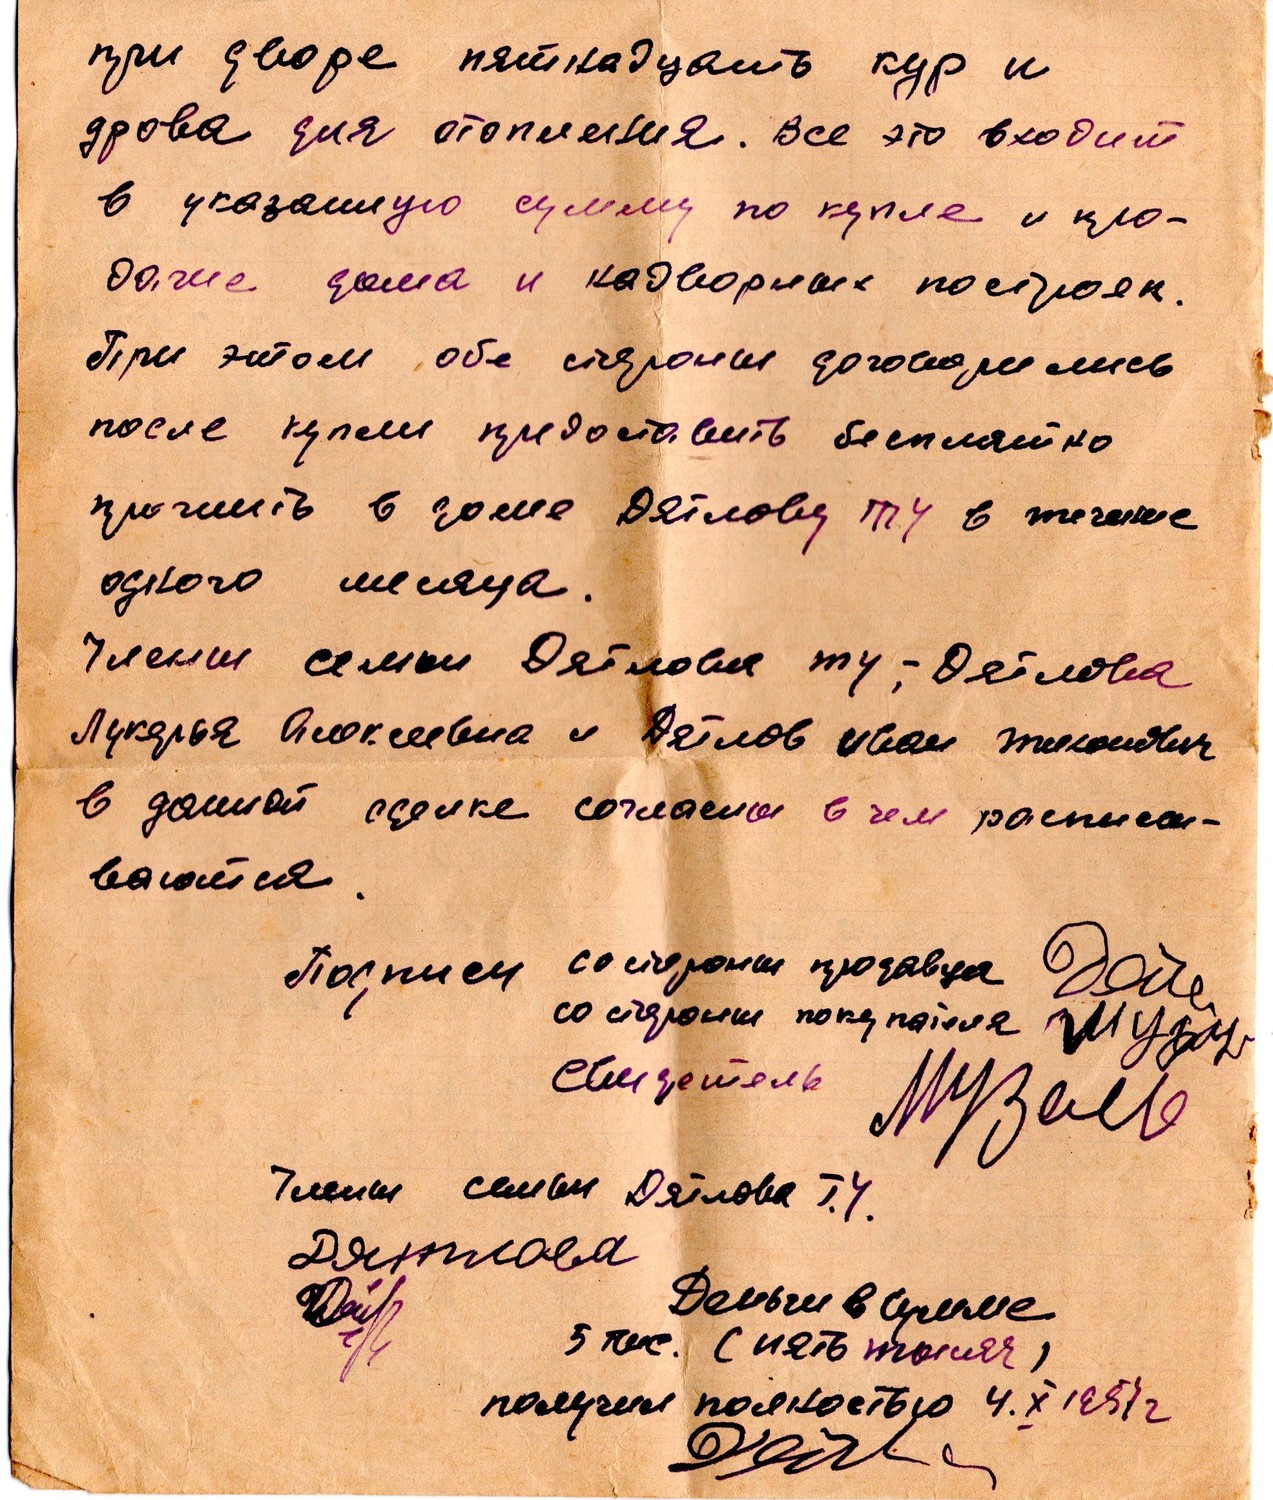 при дворе пятнадцать кур и
дрова для отопления. Все это входит
в указанную сумму по купле и про-
даже дома и надворных построек.
При этом обе стороны договорились
после купли предоставить бесплатно
прожить в доме Дятлову ТУ в течение
одного месяца.
Члены семьи Дятлова ТУ, - Дятлова
Лукерья Алексеевна и Дятлов Иван Тихонович
в данной сделке согласны в чем расписы-
ваются.
Подписи со стороны продавца
со стороны покупателя
Свидетель
Члены семьи Дятлова Т.У.
Дятлова
Деньги в сумме
5 тыс. (пять тысяч)
получил полностью 4.X 1957г